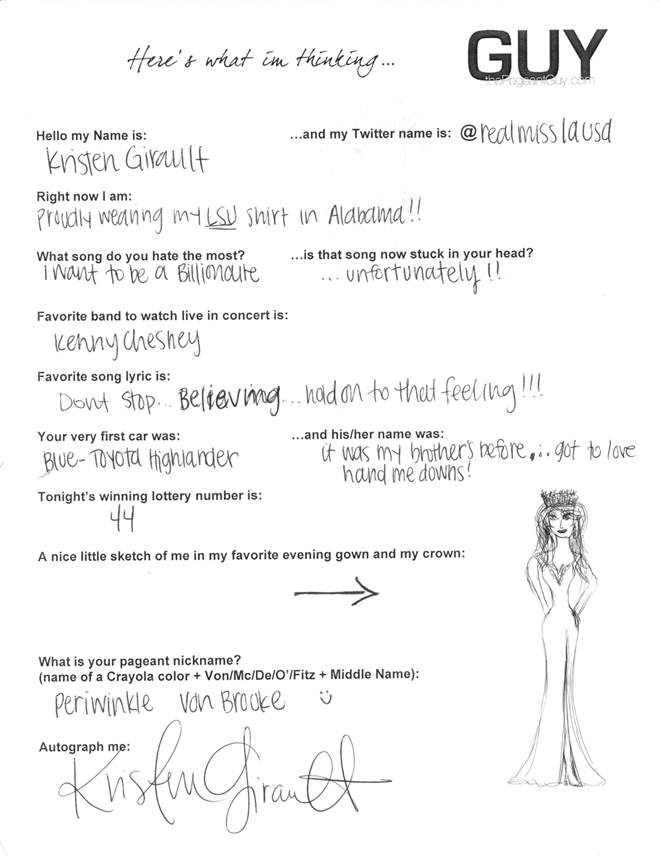 Here's what im thinking...
GUY
thePageantGuy.com
Hello my Name is:
...and my Twitter name is: @realmisslausa
Kristen Girault
Right now I am:
proudly wearing my LSU shirt in Alabama!!
What song do you hate the most?
...is that song now stuck in your head?
I want to be a Billionaire
... unfortunately!!
Favorite band to watch live in concert is:
Kenny Chesney
Favorite song lyric is:
Dont stop... Believing... hold on to that feeling!!!
Your very first car was:
...and his/her name was:
Blue-Toyota Highlander
it was my brother's before... got to love
hand me downs!
Tonight's winning lottery number is:
44
A nice little sketch of me in my favorite evening gown and my crown:
What is your pageant nickname?
(name of a Crayola color + Von/Mc/De/O'/Fitz + Middle Name):
Periwinkle Von Brooke
Autograph me:
Kristen Girault